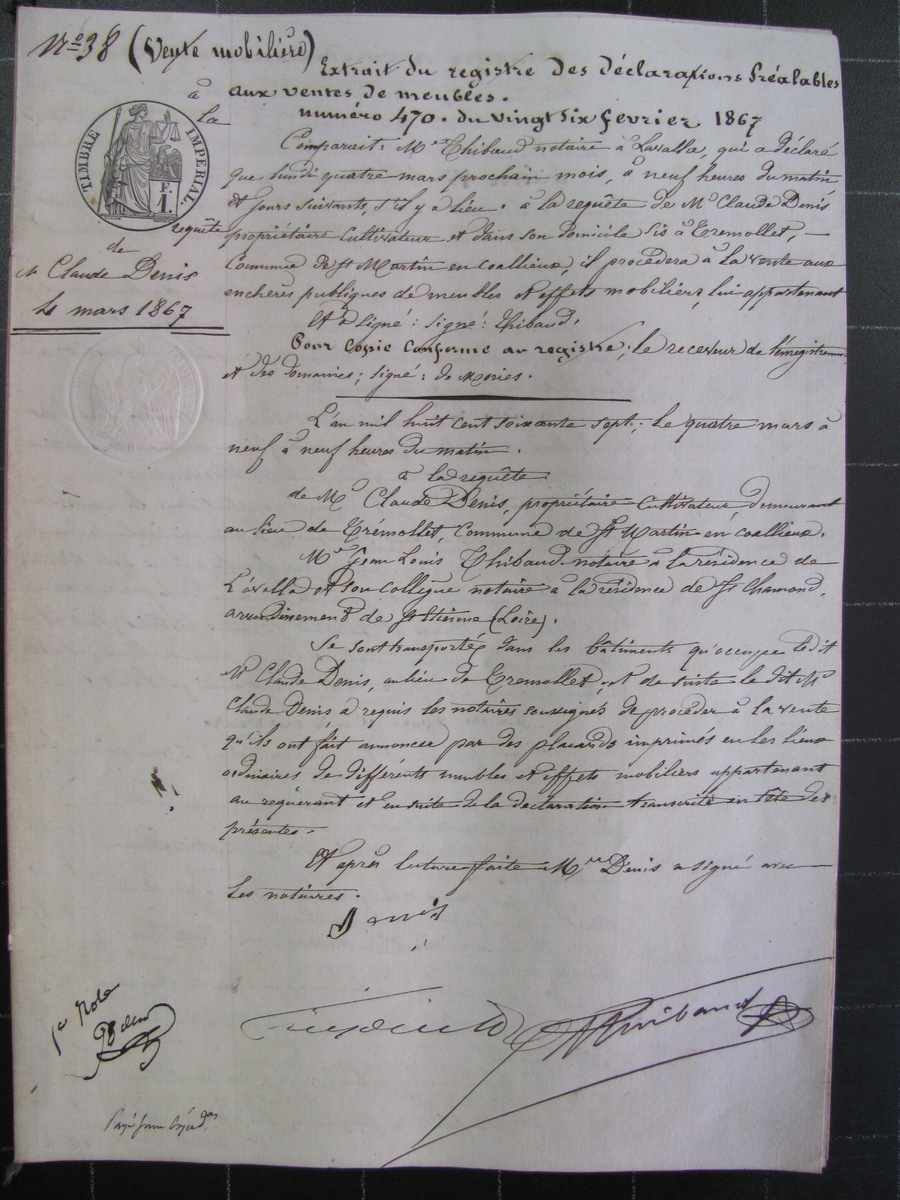 N° 38 (Vente mobilière)
à
la
requête
de
M Claude Denis
4 mars 1867
TIMBRE IMPÉRIAL
1 F.
Extrait du registre des déclarations Préalables
aux ventes de meubles.
numéro 470. du vingt six fevrier 1867
Comparait: Me Thibaud notaire à Lavalla, qui a déclaré
que lundi quatre mars prochain mois, à neuf heures du matin
et jours suivants, s'il y a lieu. à la requête de Mr Claude Denis
propriétaire Cultivateur et dans son domicile sis à Tremollet, —
Commune de St Martin en coallieux, il procedera à la vente aux
enchères publiques de meubles et effets mobiliers, lui appartenant
Et a signé: signé: Thibaud.
Pour Copie Conforme au registre; le receveur de l'enregistrem
et des domaines; signé: de Mories.
L'an mil huit cent soixante sept; le quatre mars à
neuf à neuf heures du matin.
à la requête
de Mr Claude Denis, propriétaire Cultivateur demeurant
au lieu de Trémollet, Commune de St Martin en coallieux.
Me Jean Louis Thibaud notaire à la résidence de
Lavalla et son collègue notaire à la résidence de St Chamond,
arrondissement de St Etienne (Loire).
Se sont transportés dans les bâtiments qu'occupe ledit
Mr Claude Denis, au lieu de Tremollet, et de suite le dit Mr
Claude Denis a requis les notaires soussignés de procéder à la vente
qu'ils ont fait annoncer par des placards imprimés en les lieux
ordinaires de différents meubles et effets mobiliers appartenant
au requérant et ensuite de la déclaration transcrite en tête des
présentes.
Et après lecture faite Mr Denis a signé avec
les notaires.
Denis
Thibaud
1er Role